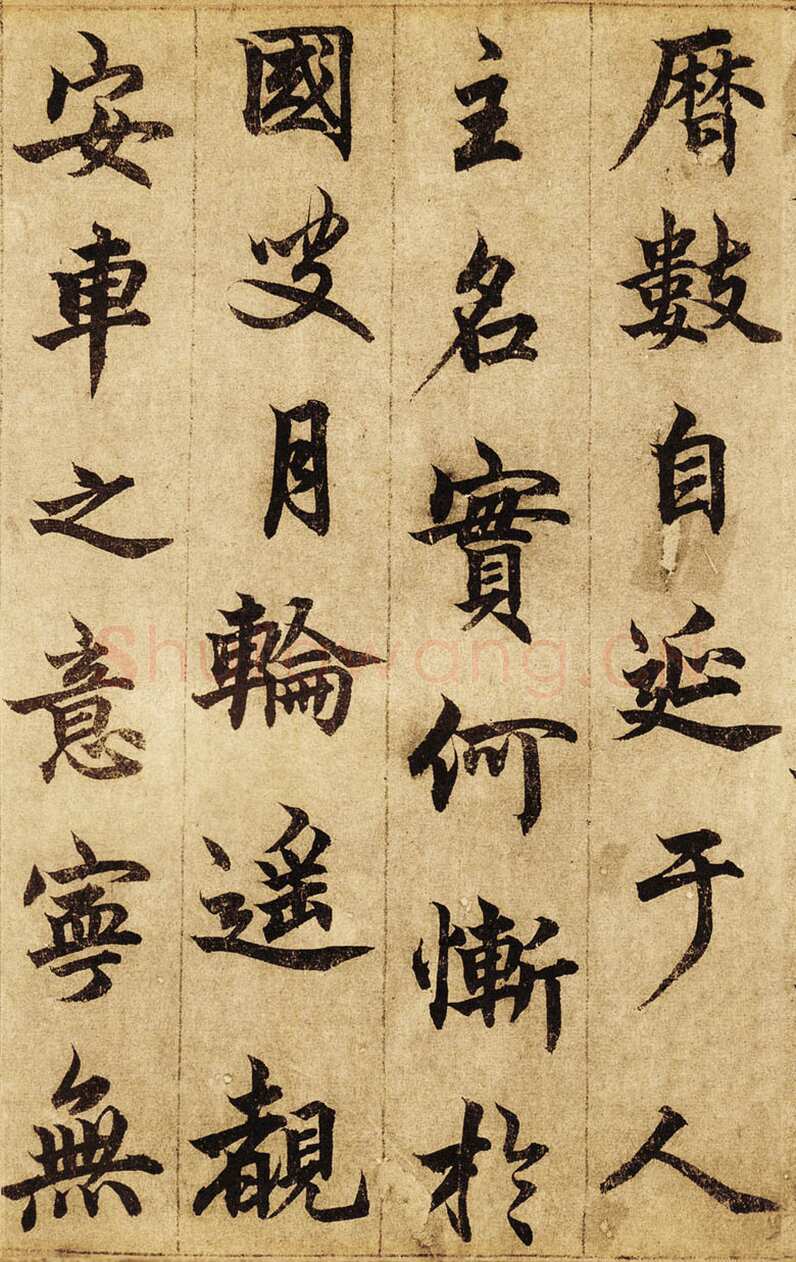 暦數自延于人
主名實何慚於
國叟月輪遥覩
安車之意寧無
Shufawang.Cn